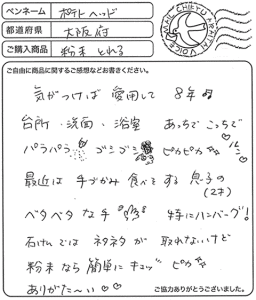 ペンネーム ポテトヘッド
都道府県 大阪府
ご購入商品 粉末 とれる
CHIETU ARAITAI
VOICE MAIL
ご自由に商品に関するご感想などお書きください。
気がつけば 愛用して 8年♪
台所・洗面・浴室 あっちで こっちで
パラパラ ゴシゴシ ピカピカ
最近は 手づかみ 食べを する 息子の
(2才)
ベタベタな手 特にハンバーグ!
石けんでは ネタネタが 取れないけど
粉末なら 簡単に キュッ ピカ
ありがた〜い♡♡
ご協力ありがとうございました。